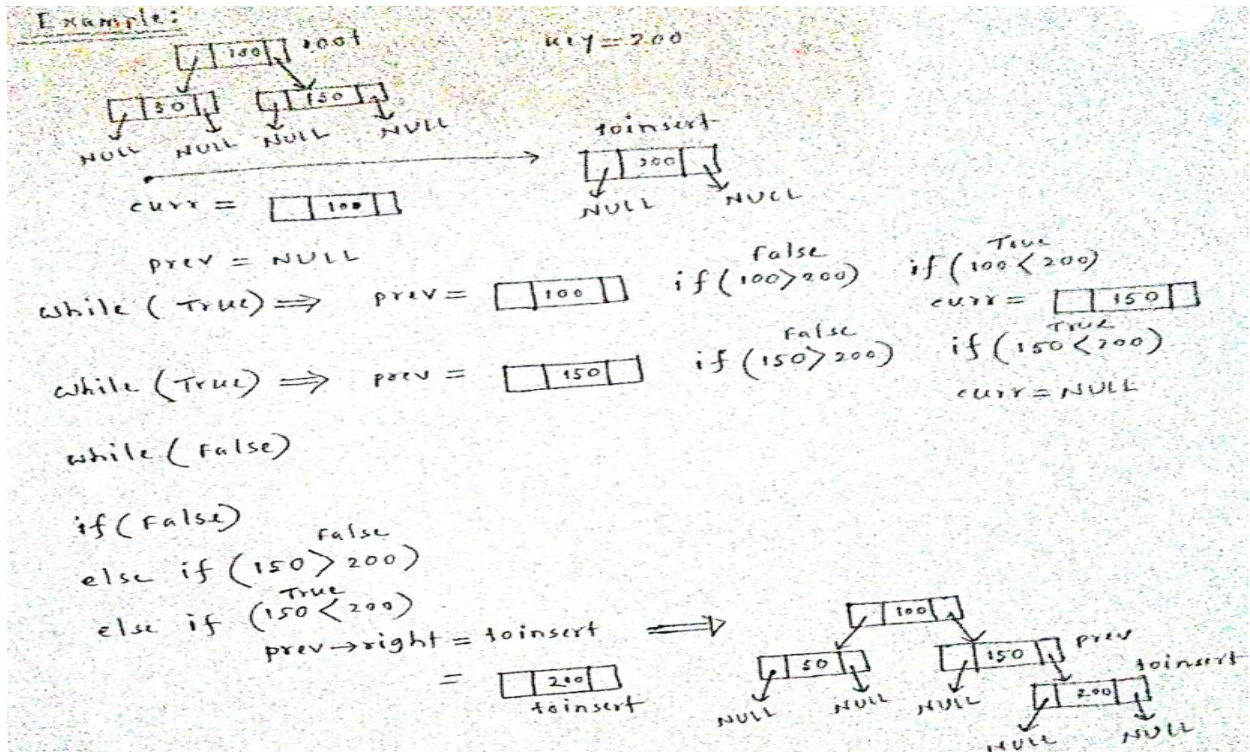 Example:
100 root key = 200
50 150
NULL NULL NULL NULL
toinsert
200
NULL NULL
curr = 100
prev = NULL
while ( True) ⇒ prev = 100 if (100>200) False if (100<200) True
curr = 150
while (True) ⇒ prev = 150 if (150>200) False if (150<200) True
curr = NULL
while ( False)
if (False)
else if (150>200) False
else if (150<200) True
prev→right = toinsert ⇒
= 200
toinsert
100
50 150 prev
200 toinsert
NULL NULL NULL
NULL NULL